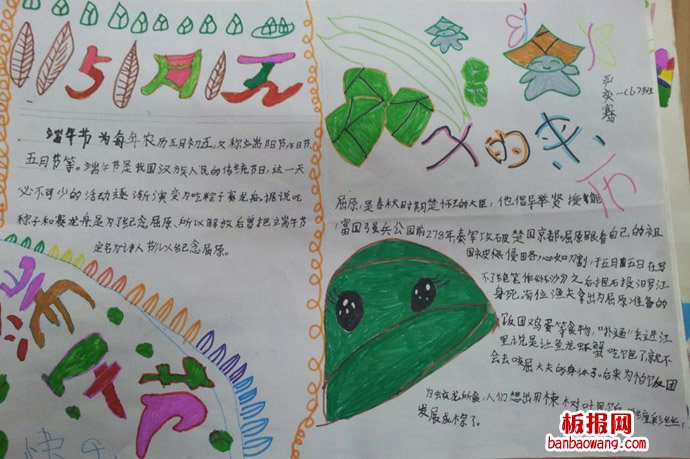 5月五
端午节为每年农历五月初五,又称端阳节,午日节
五月节等。端午节是我国汉族人民的传统节日,这一天
必不可少的活动逐渐演变为吃粽子赛龙舟。据说吃
粽子和赛龙舟是为了纪念屈原,所以解放后曾把端午节
定名为诗人节以纪念屈原。
端午节
快乐
子的来
历
屈原,是春秋时期楚怀王的大臣,他倡导举贤授能
富国强兵公元前278年秦军攻破楚国京都屈原眼看自己的祖
国被侵心如刀割,于五月五日在写
不了绝笔作怀沙之后抱石投汨罗江
身死,有位渔夫拿出为屈原准备的
饭团鸡蛋等食物,“扑通”丢进江
里说是让鱼龙虾蟹吃饱了就不
会去咬屈大夫的身体了。后来为怕饭团
为蛟龙所食,人们想出用楝树叶
发展成棕了。
板报网
banbaowang.com